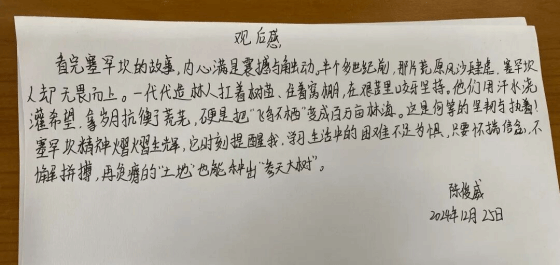 观后感
看完塞罕坝的故事，内心满是震撼与触动。半个多世纪前，那片荒原风沙肆虐，塞罕坝
人却无畏而上。一代代造林人扛着树苗、住着窝棚，在艰苦里咬牙坚持。他们用汗水浇
灌希望，拿岁月抗衡荒芜，硬是把“飞鸟不栖”变成百万亩林海。这是何等的坚韧与执着！
塞罕坝精神熠熠生辉，它时刻提醒我，学习生活中的困难不足为惧，只要怀揣信念，不
懈拼搏，再贫瘠的“土地”也能种出“参天大树”。
陈俊威
2024年12月25日